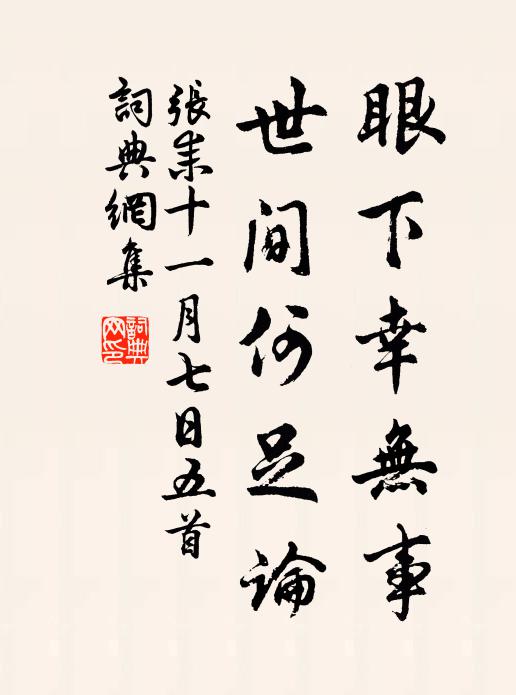 眼下幸無事
世間何足論
張耒十一月七日五首
詞典網集
詞典網印